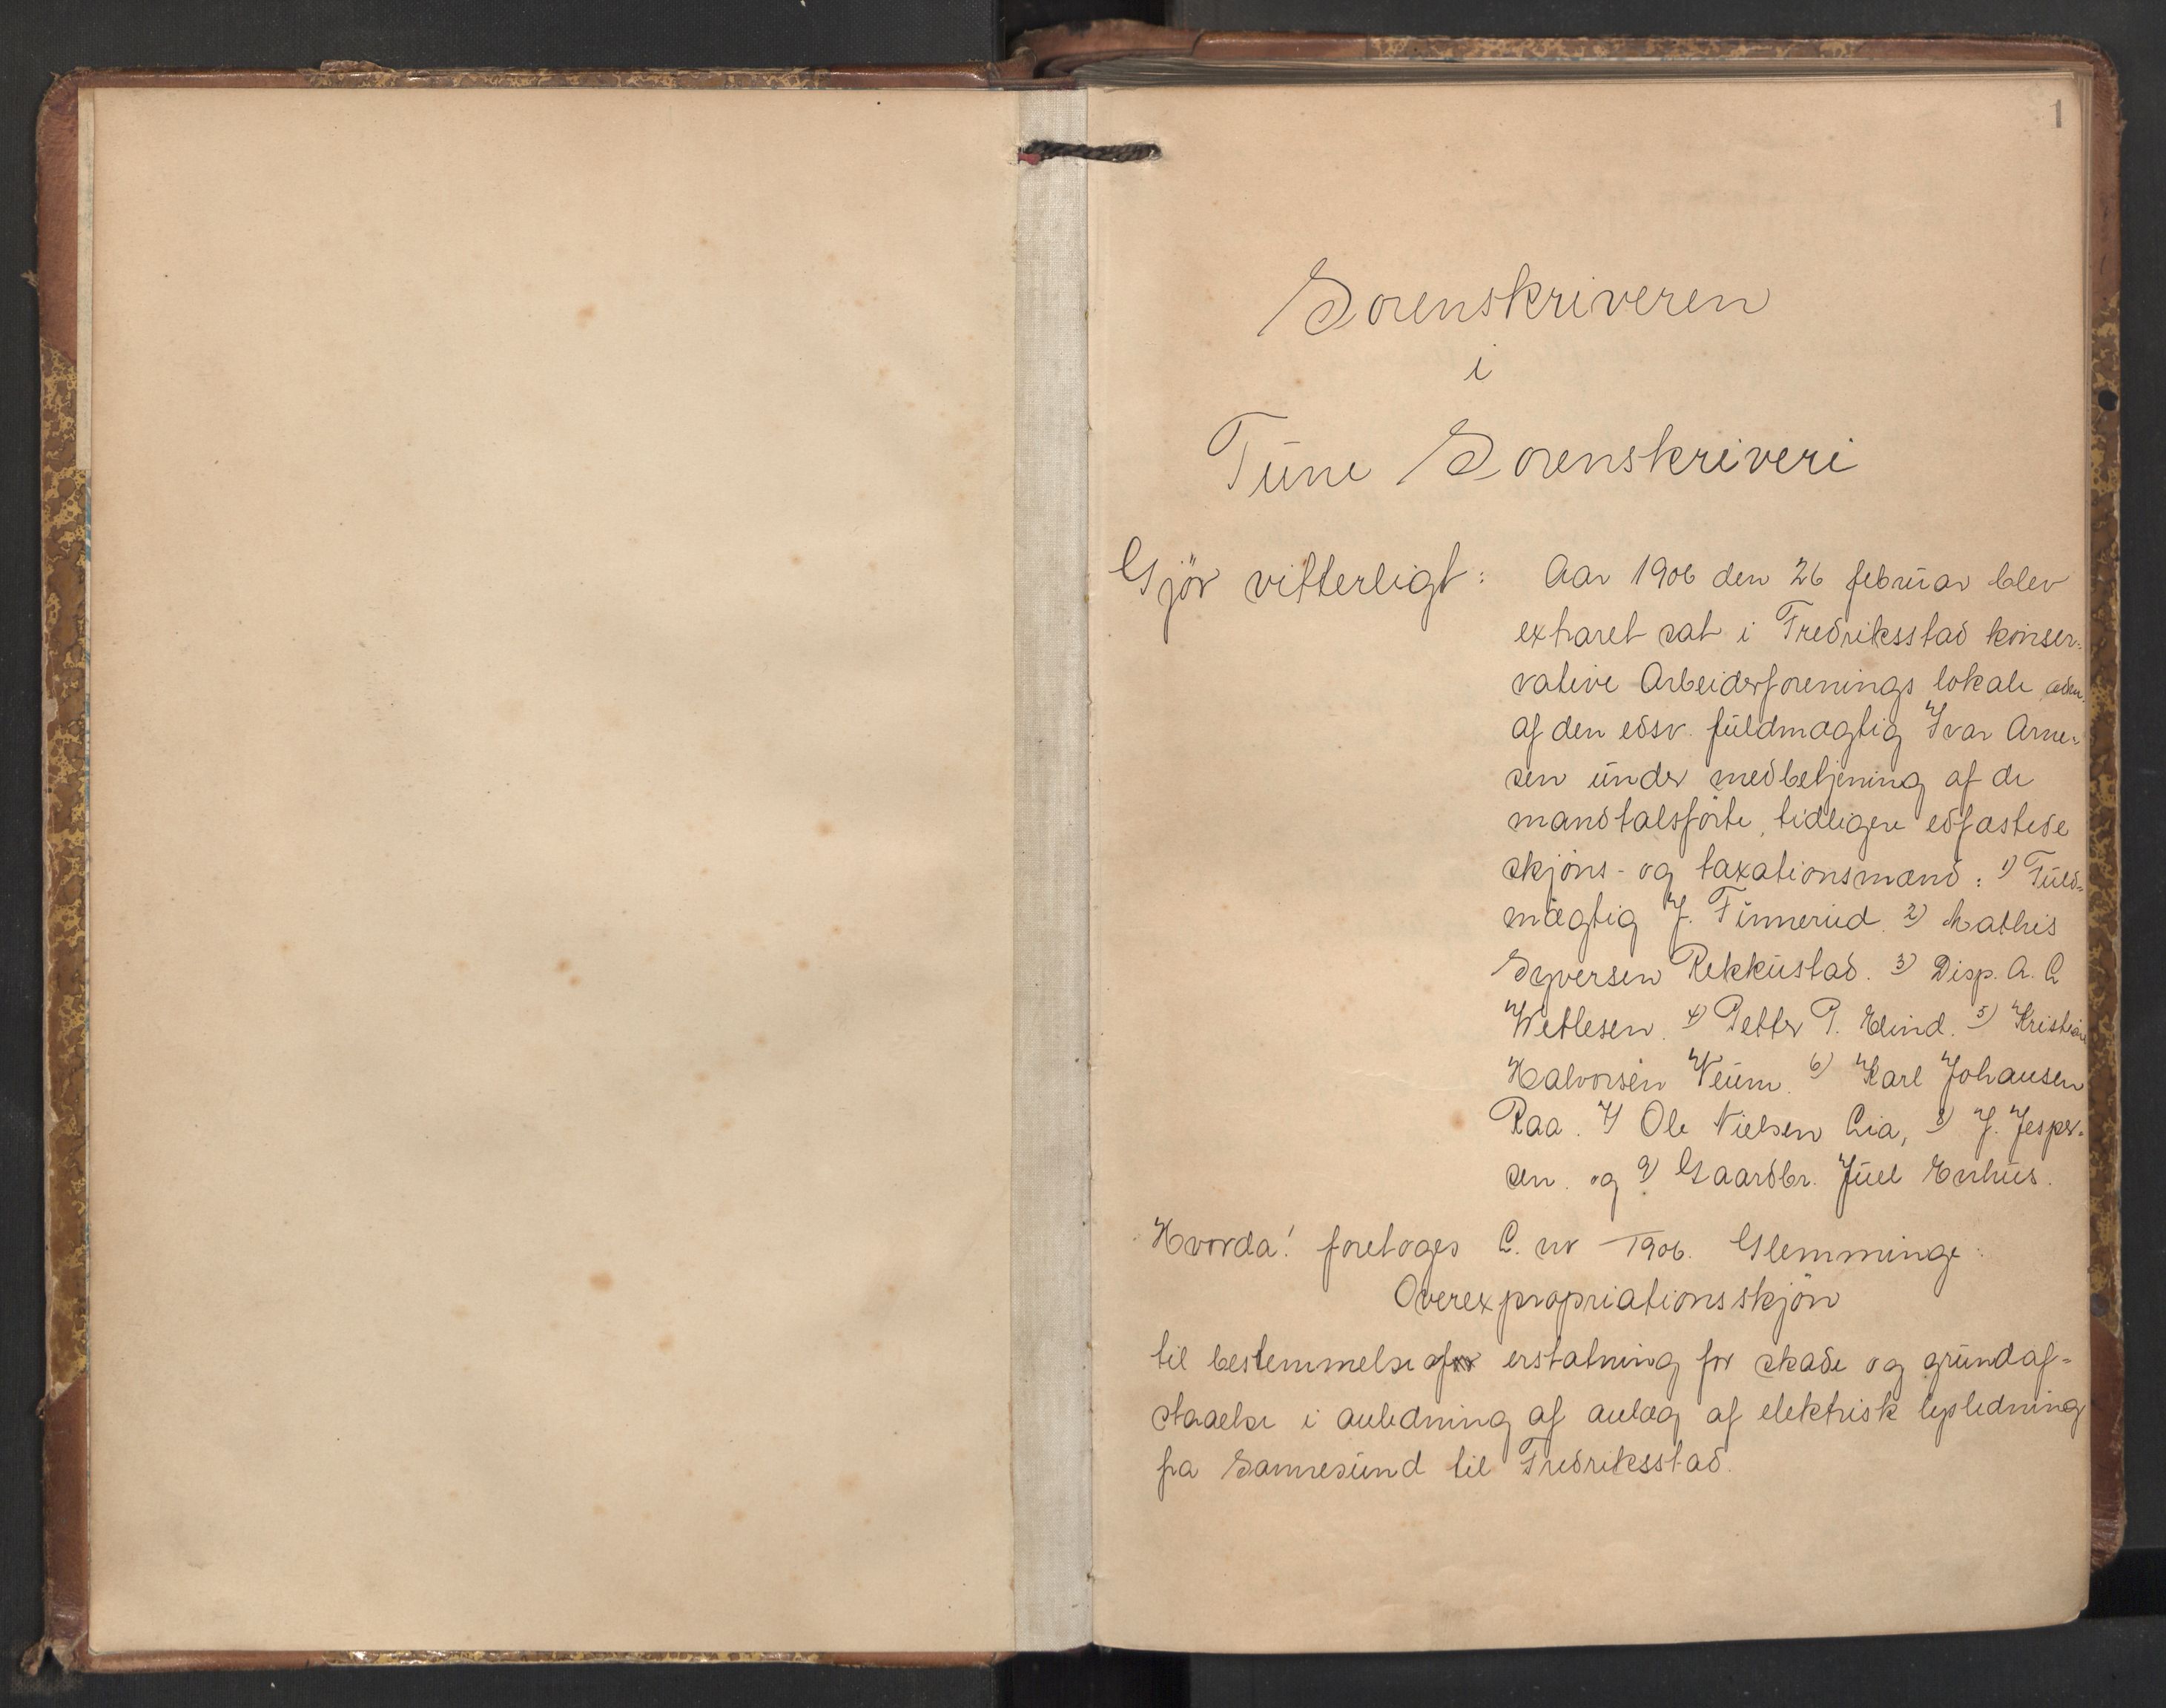 1
Sorenskriveren
i
Tune Sorenskriveri
Gjör vitterligt: Aar 1906 den 26 februar blev
extraret sat i Fredriksstad konser-
vative Arbeiderforenings lokale
af den edsv. fuldmægtig Ivar Arne-
sen under medbetjening af de
mandtalsførte, tidligere edfæstede
skjøns- og taxationsmænd: 1) Fuld-
mægtig J. Finnerud. 2) Mathis
Syversen Rekkustad. 3) Disp. A. L
Wetlesen. 4) Petter P. Lund. 5) Kristian
Halvorsen Veum. 6) Karl Johansen
Raa. 7) Ole Nielsen Lia, 8) J. Jesper-
sen. og 9) Gaardbr. Juel Enhus.
Hvorda! foretoges L. nr 1906. Glemminge:
Overexpropriationsskjön
til bestemmelse af erstatning for skade og grundaf-
staaelse i anledning af anlæg af elektrisk lysledning
fra Sannesund til Fredriksstad.